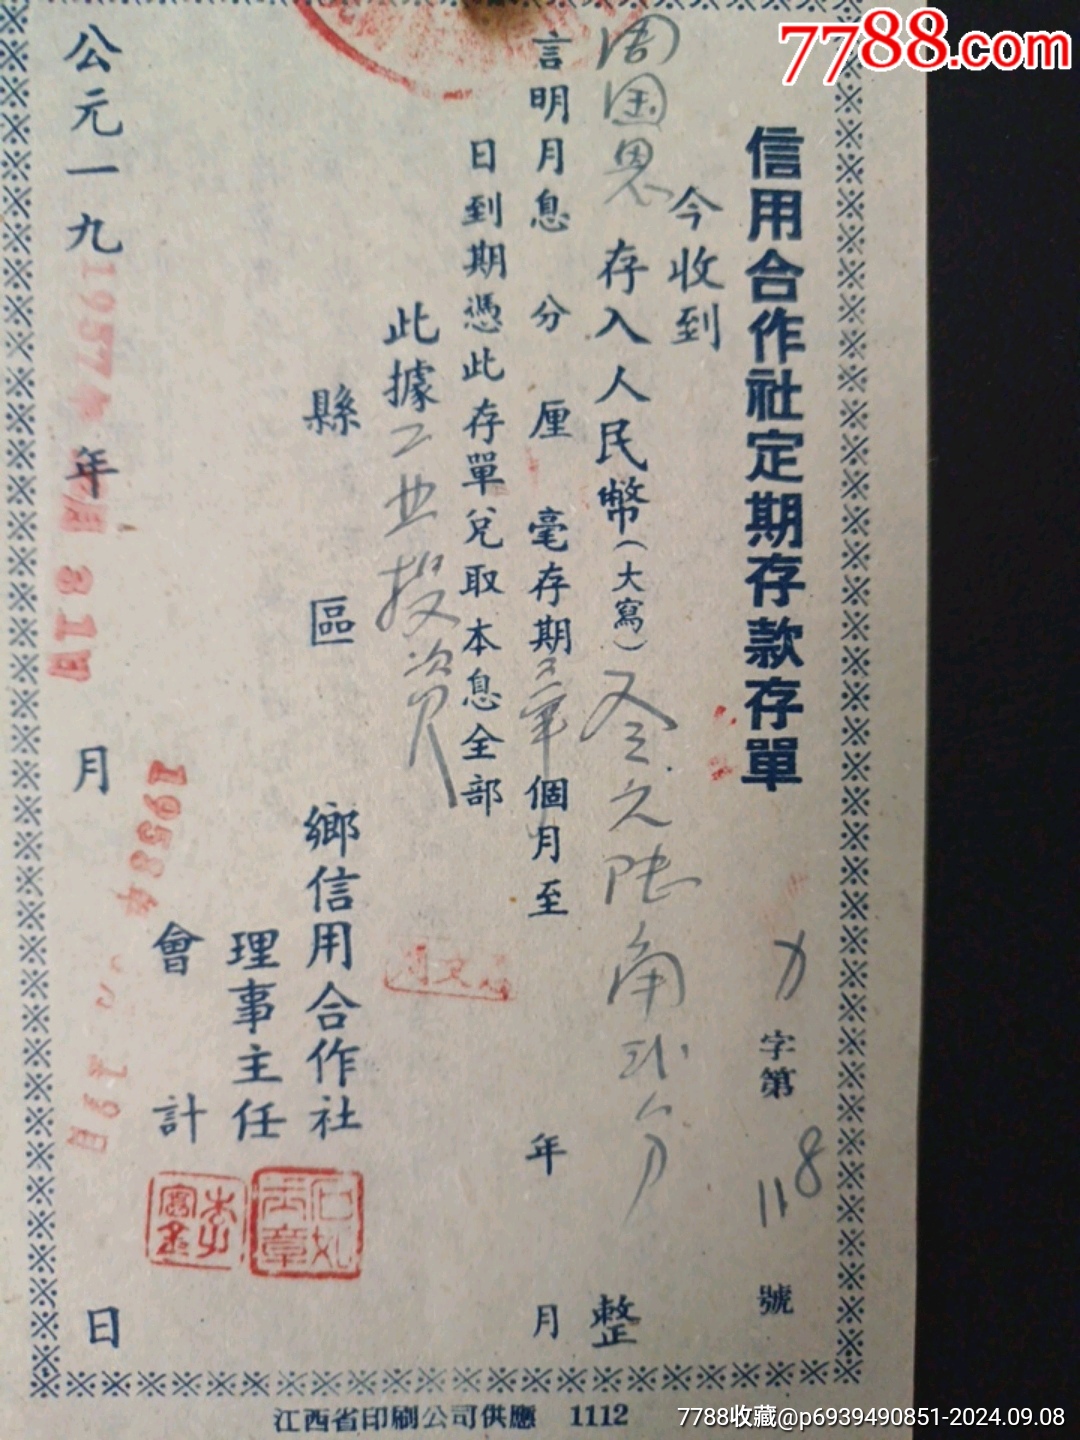 7788.com
信用合作社定期存款存單
字第 118 號
今收到
周国恩 存入人民幣（大寫）叁元陆角弍分 整
言明月息 分 厘 毫存期 個月至 年 月
日到期憑此存單兌取本息全部
此據 工业投资
縣 區 鄉信用合作社
理事主任
會計
公元一九 年 月 日
1957年 月31日
1958年 19日
江西省印刷公司供應 1112
7788收藏@p6939490851-2024.09.08